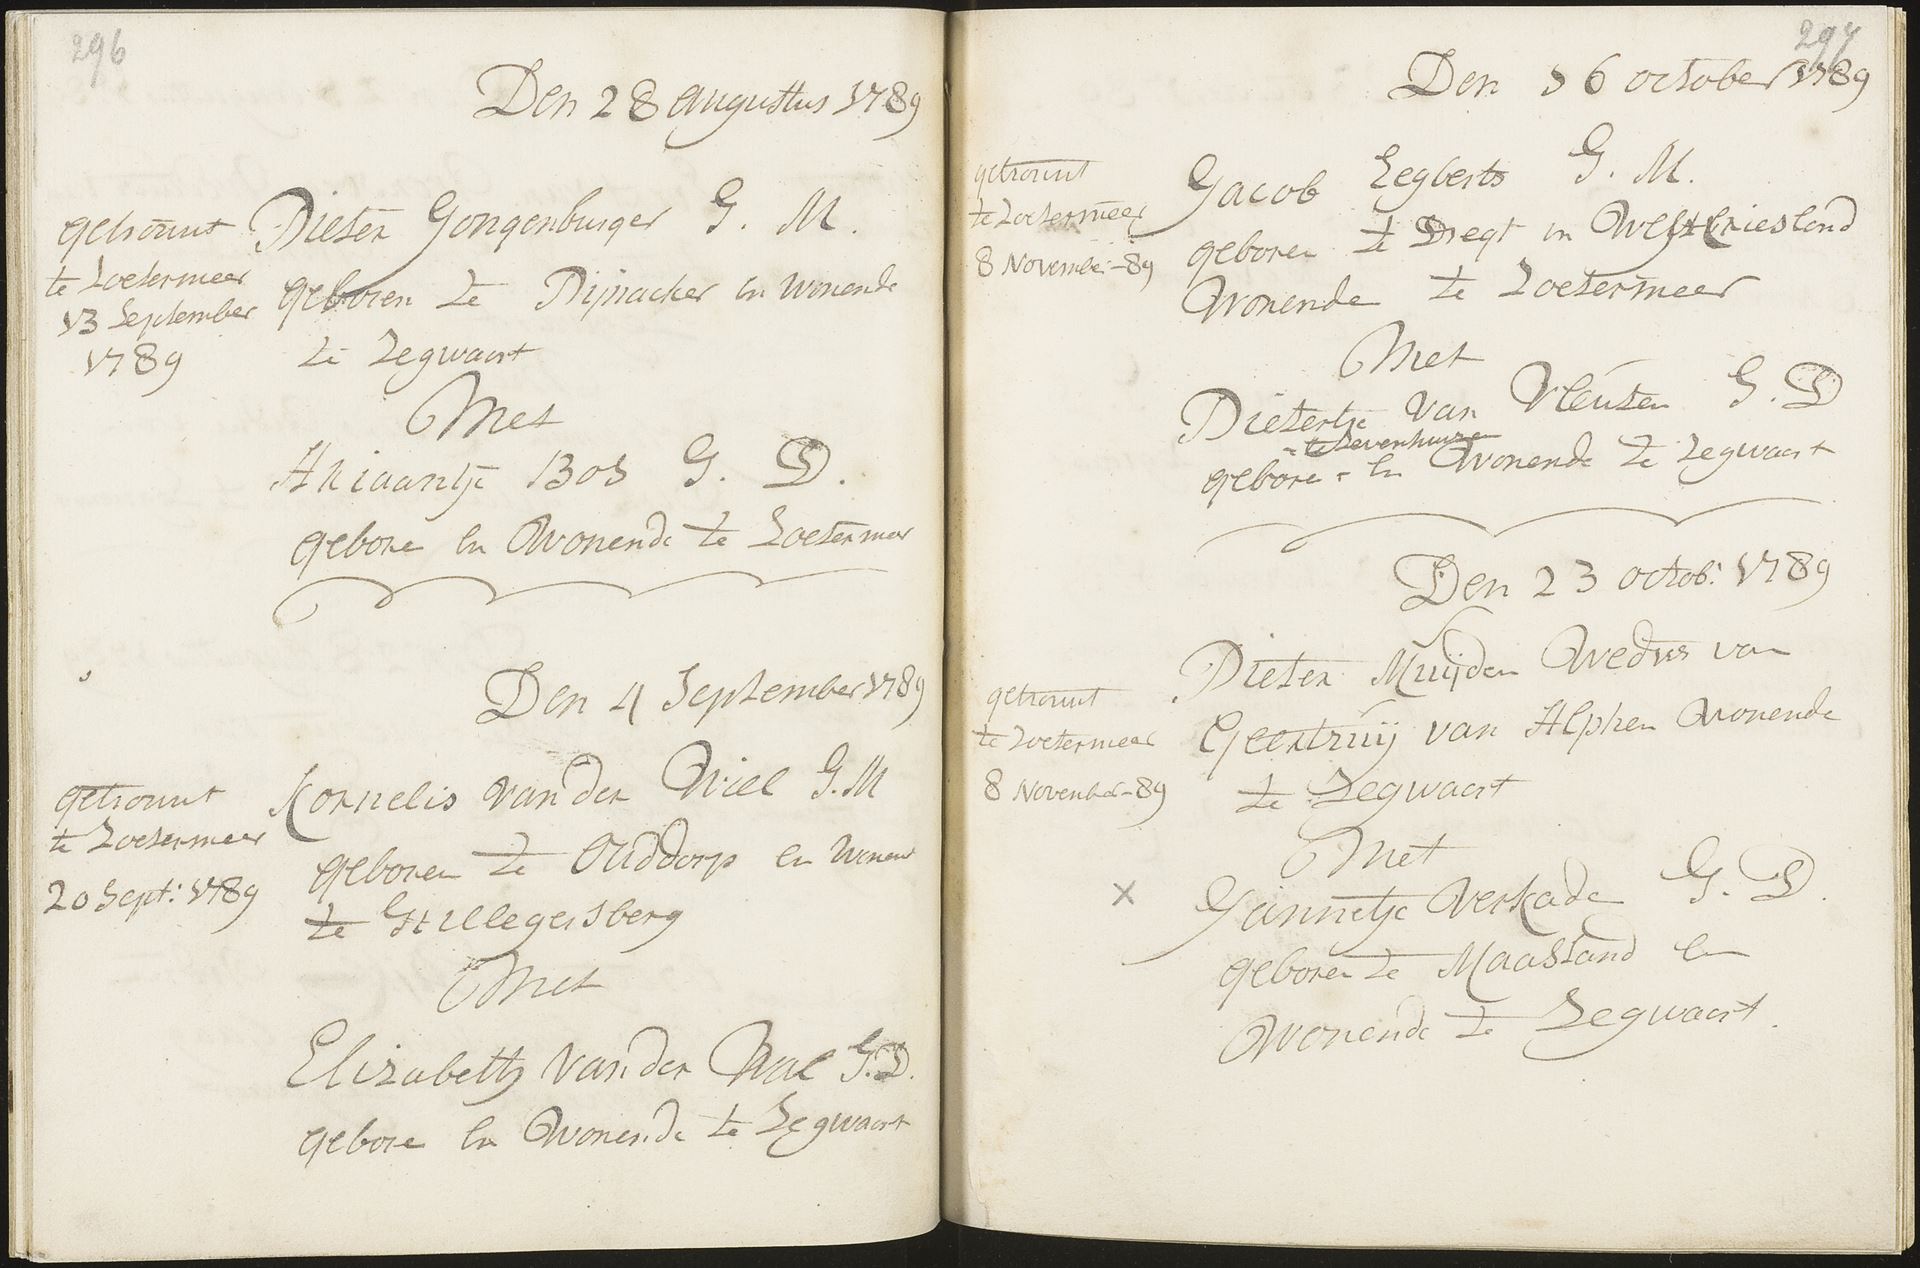 296
Den 28 augustus 1789
getrouwt
te Zoetermeer
13 September
1789
Pieter Jongenburger J. M.
geboren te Pijnacker en wonende
te Zegwaart
Met
Ariaantje Bos J. D.
gebore en Wonende te Zoetermeer
Den 4 September 1789
getrouwt
te Zoetermeer
20 Sept: 1789
Kornelis van der Wiel J. M
geboren te Ouddorp en
te Hillegersberg
Met
Elizabeth van der Wal J. D.
gebore en Wonende te Zegwaart
297
Den 16 october 1789
getrouwt
te Zoetermeer
8 November - 89
Jacob Zegberts J. M.
geboren te in Westvriesland
Wonende te Zoetermeer
Met
Pietertje van Vleuten J. D
te Zevenhuize
gebore - en Wonende te Zegwaart
Den 23 octob: 1789
getrouwt
te Zoetermeer
8 November - 89
Pieter Muijden Wedwr van
Geertruij van Alphen Wonende
te Zegwaart
Met
X
Jannetje Verkade J. D.
geboren te Maasland en
Wonende te Zegwaart.